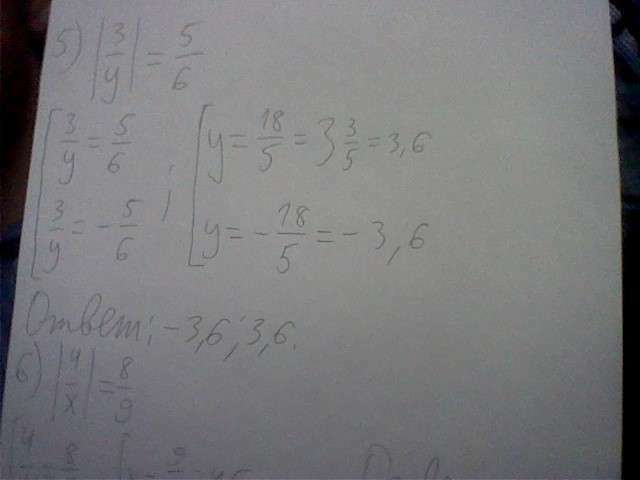 5) |3/y| = 5/6
[3/y = 5/6 ; [y = 18/5 = 3 3/5 = 3,6
[3/y = - 5/6 [y = - 18/5 = - 3,6
Ответ: -3,6; 3,6.
6) |4/x| = 8/9